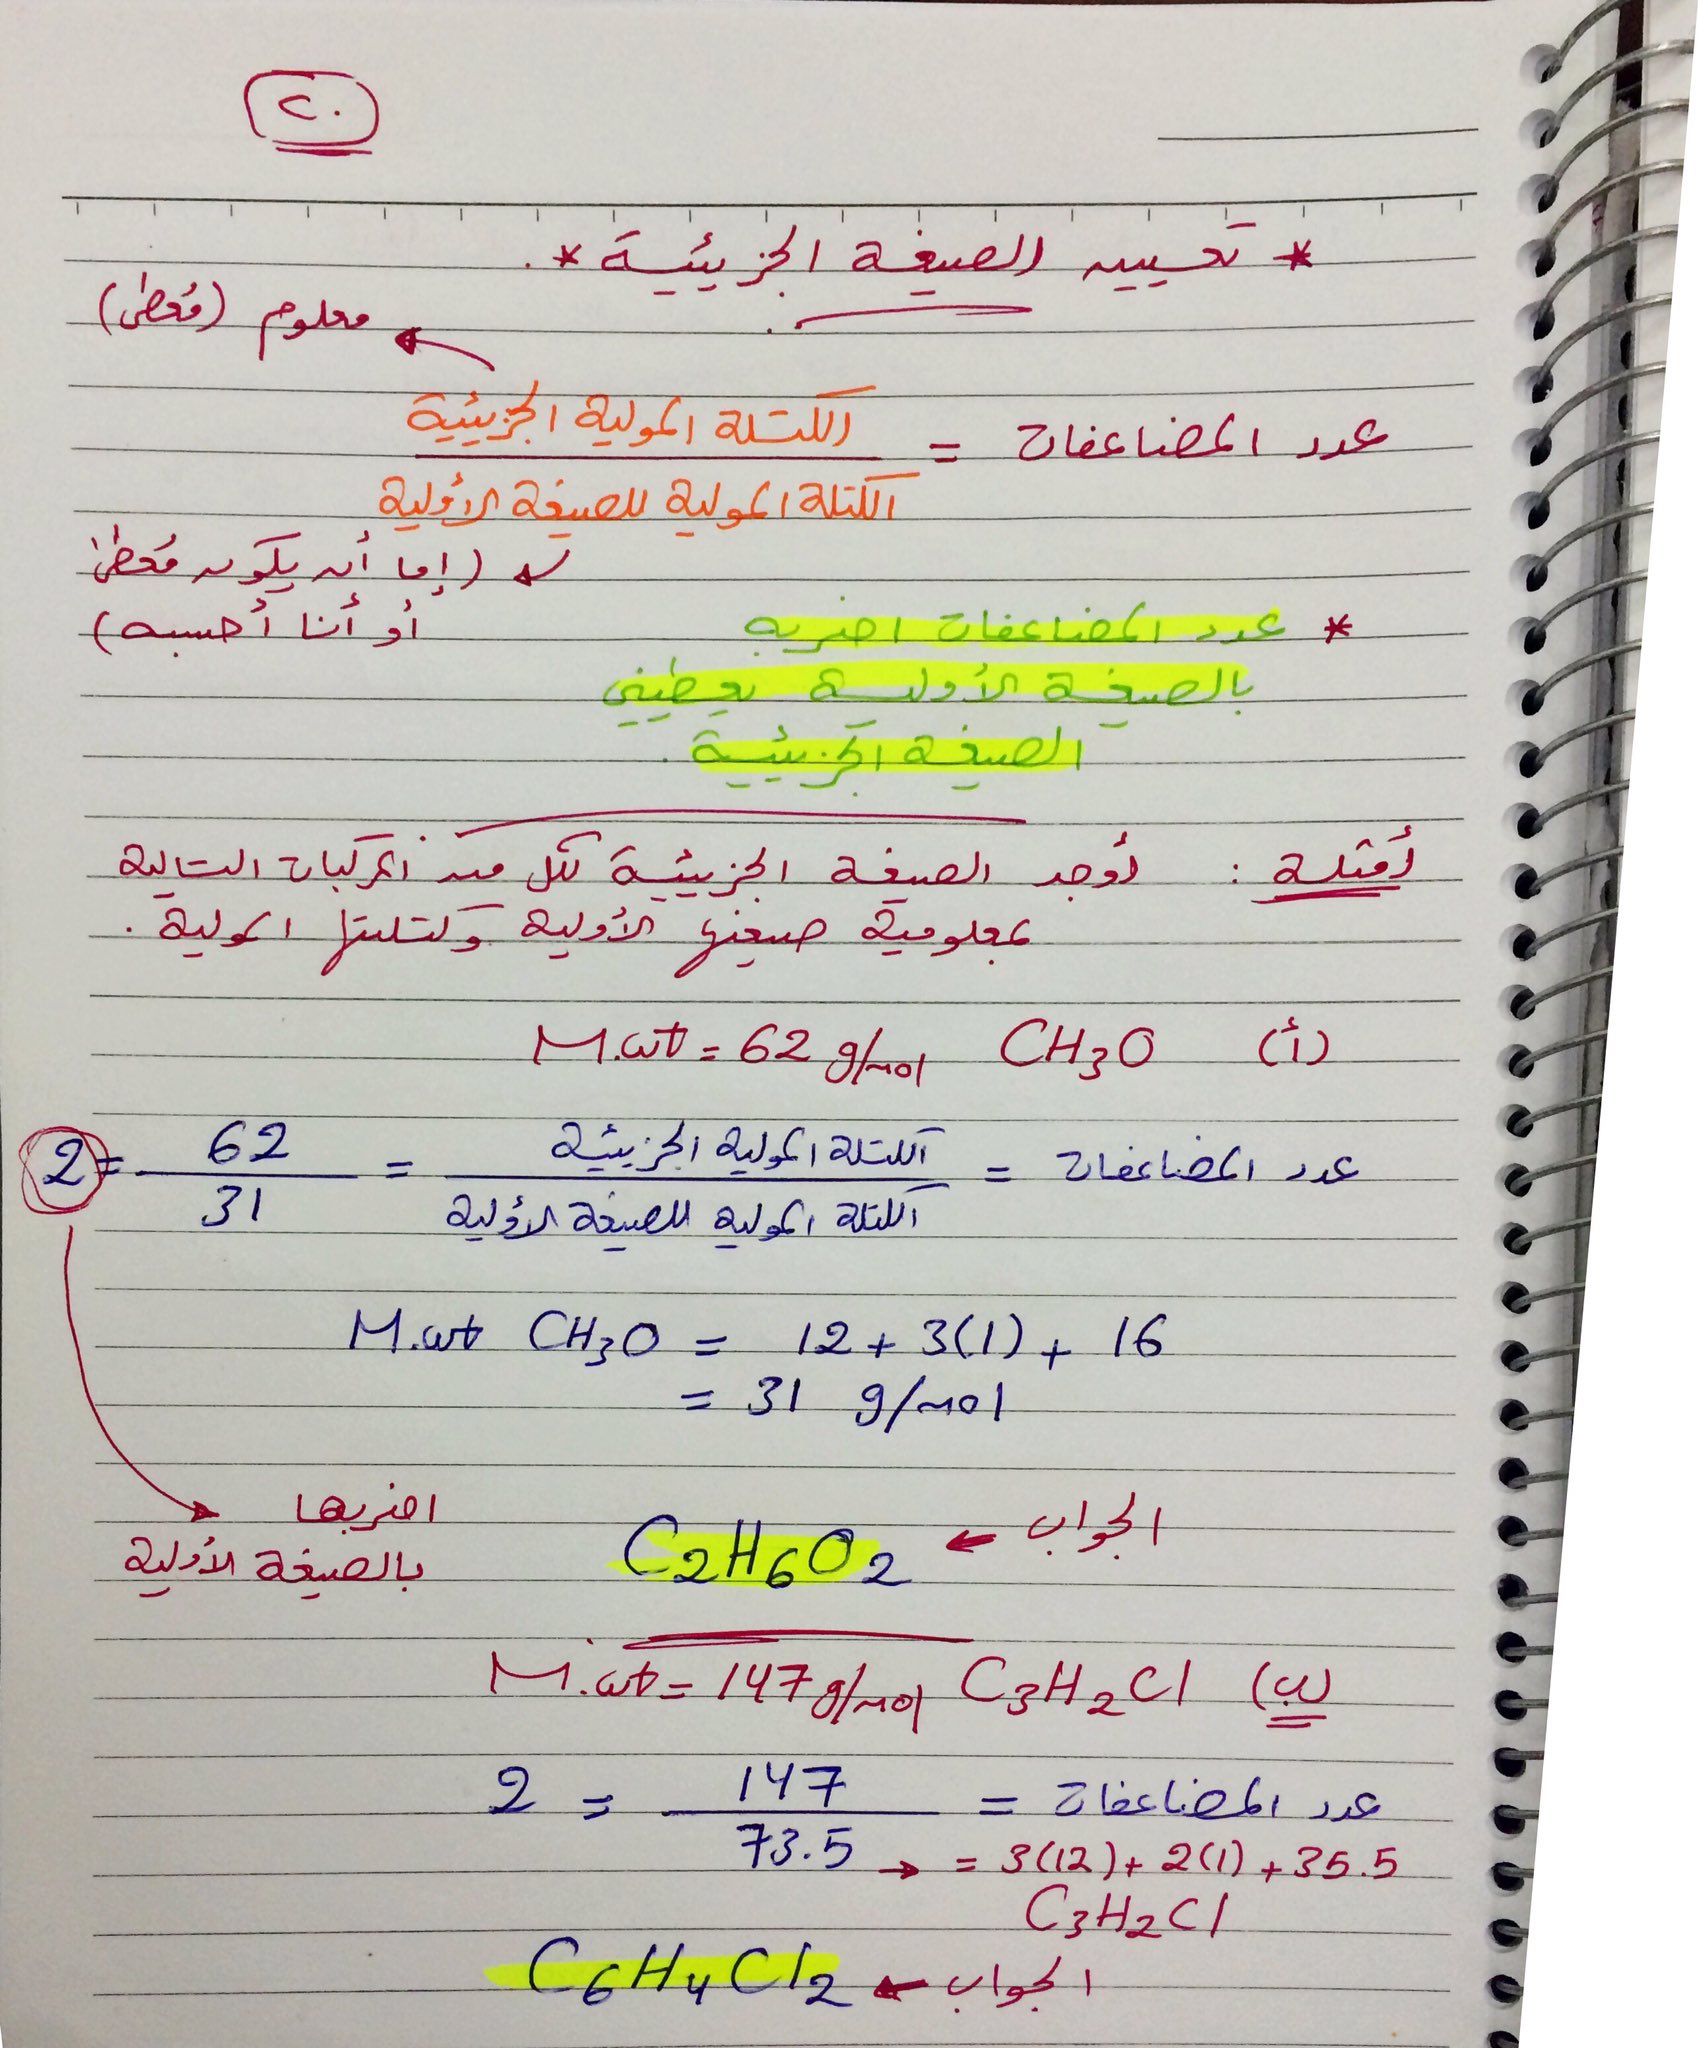 ٢٠
* تعيين الصيغة الجزيئية *.
معلوم (مُعطى)
عدد المضاعفات = الكتلة المولية الجزيئية
الكتلة المولية للصيغة الأولية
(إما أن يكون مُعطى
أو أنا أحسبه)
* عدد المضاعفات اضربه
بالصيغة الأولية يعطيني
الصيغة الجزيئية.
أمثلة : أوجد الصيغة الجزيئية لكل من المركبات التالية
بمعلومية صيغتها الأولية وكتلتها المولية .
(أ) CH3O M.wt = 62 g/mol
عدد المضاعفات = الكتلة المولية الجزيئية = 62 = 2
الكتلة المولية للصيغة الأولية 31
M.wt CH3O = 12 + 3(1) + 16
= 31 g/mol
اضربها
بالصيغة الأولية
الجواب ← C2H6O2
(ب) C3H2Cl M.wt = 147 g/mol
عدد المضاعفات = 147 = 2
73.5 → = 3(12) + 2(1) + 35.5
C3H2Cl
الجواب ← C6H4Cl2